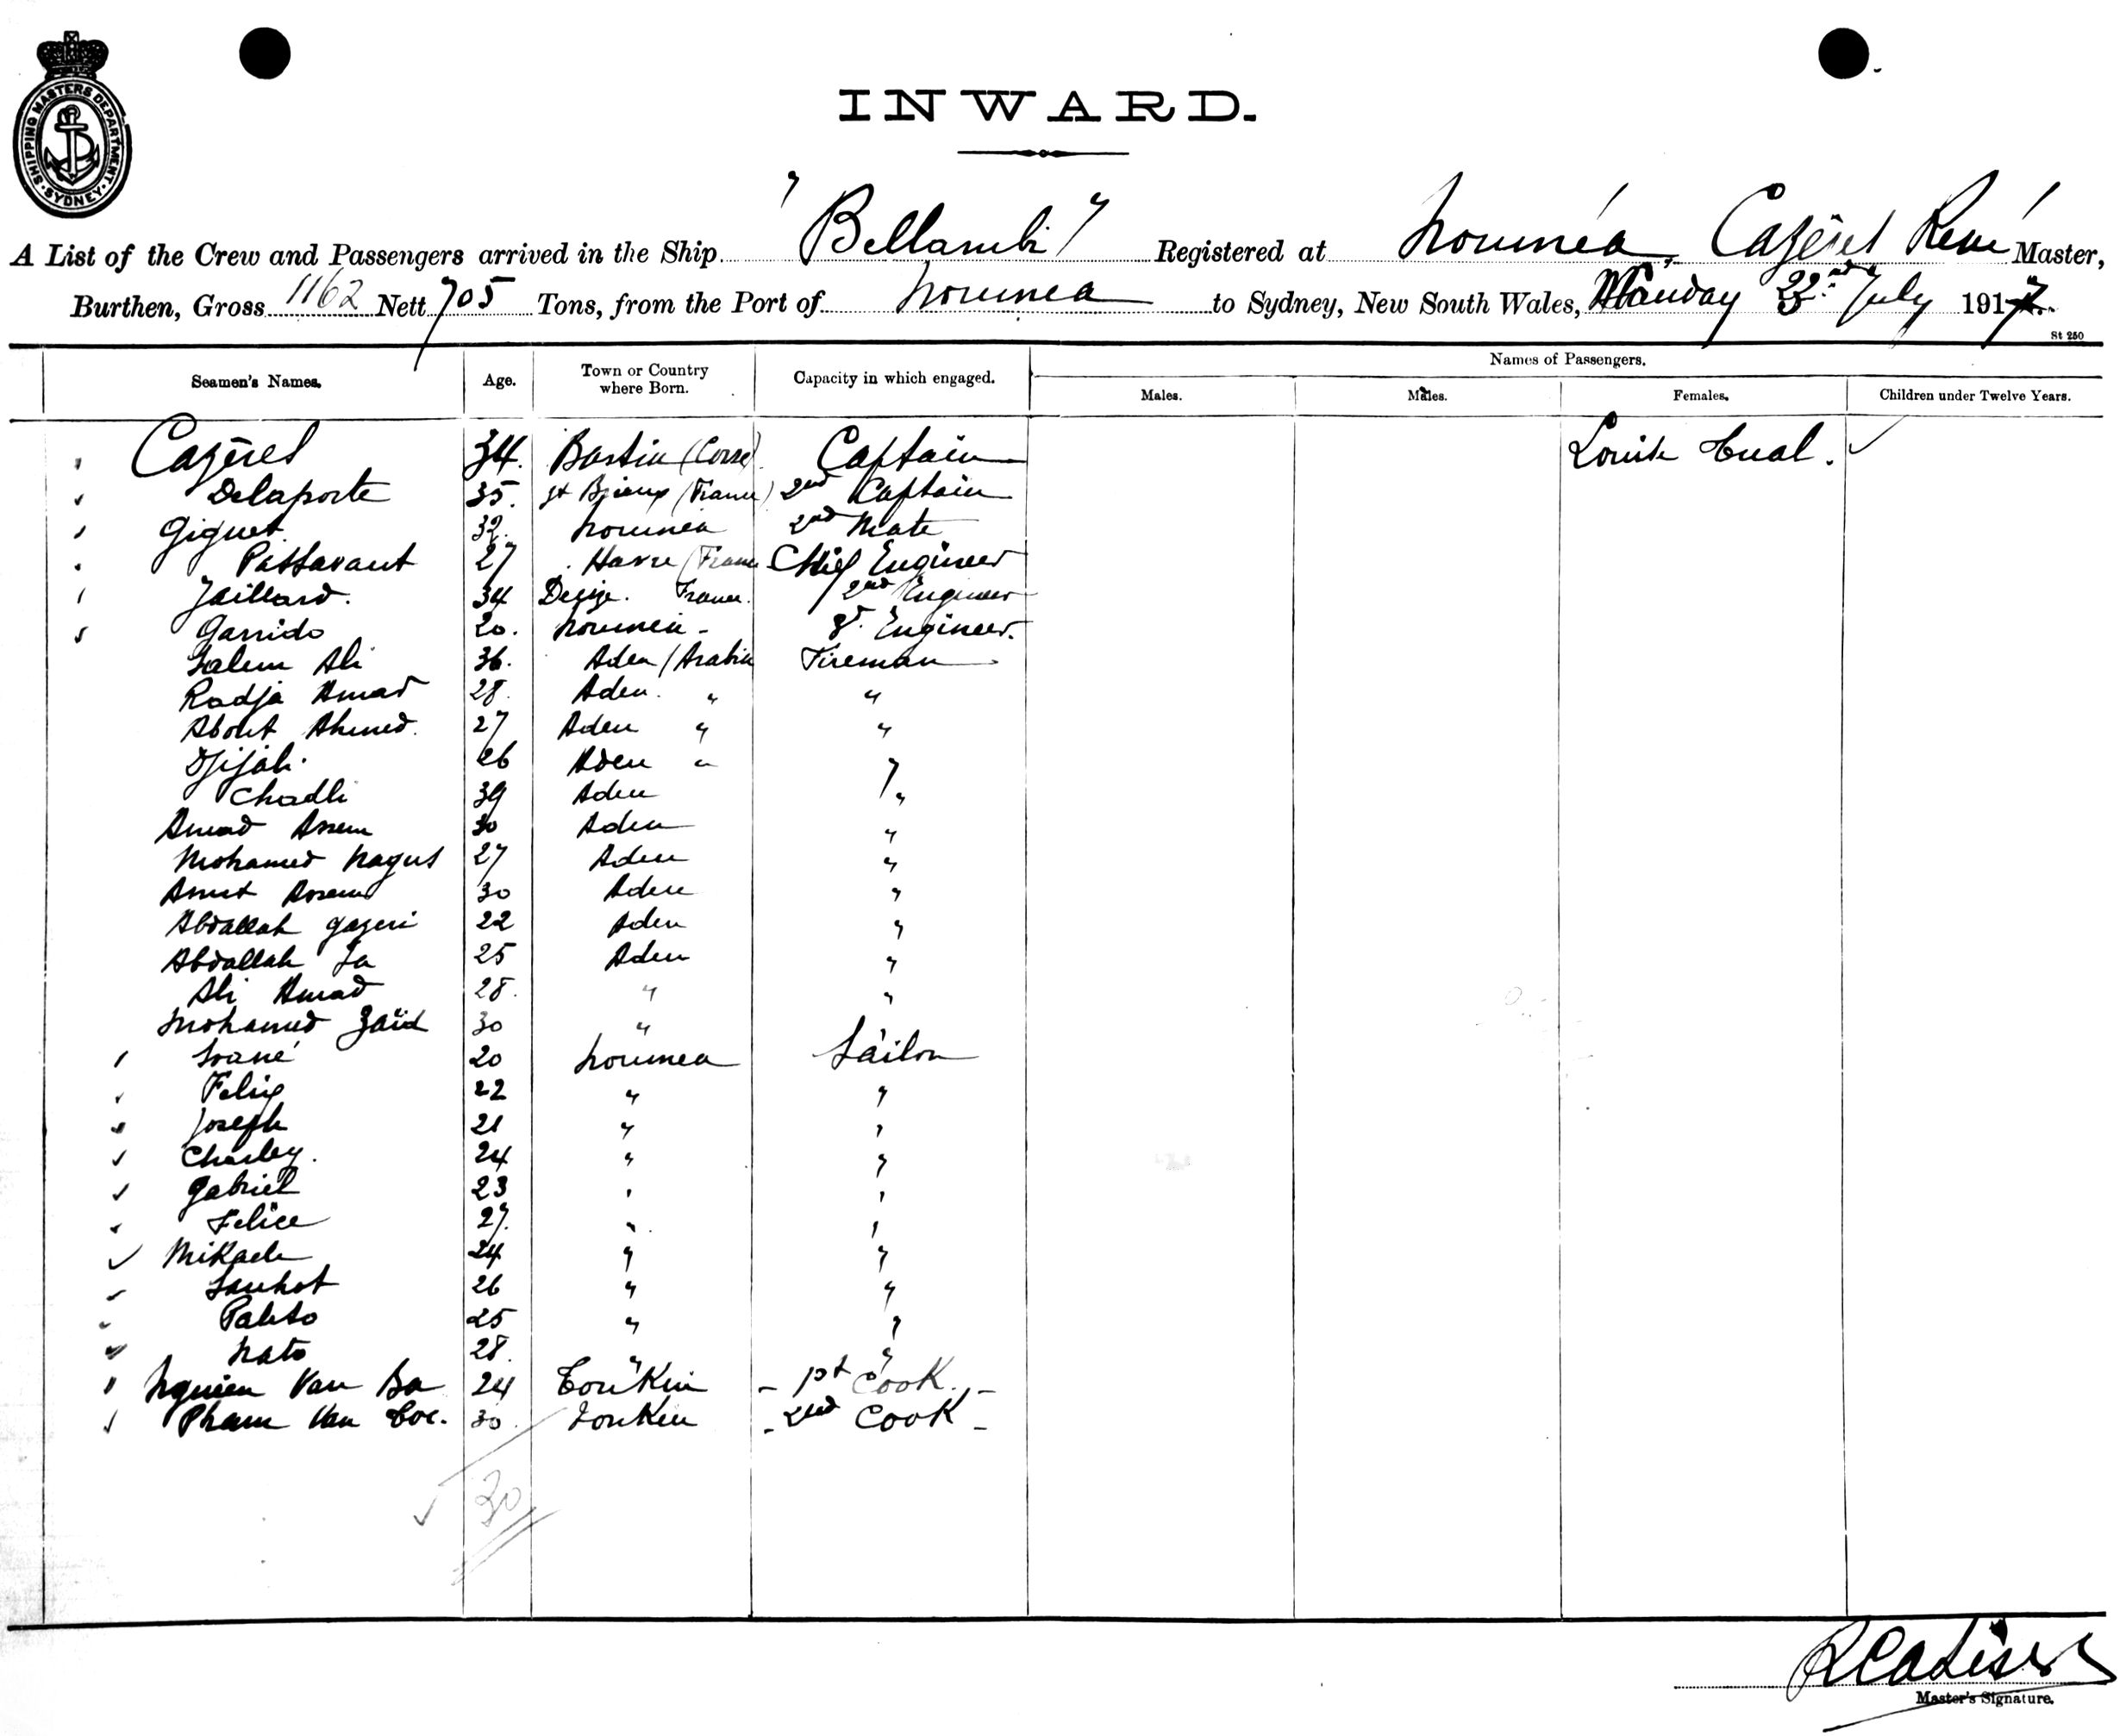 SHIPPING MASTERS DEPARTMENT · SYDNEY ·
INWARD.
A List of the Crew and Passengers arrived in the Ship "Bellambi" Registered at Nouméa, Cazérès René Master,
Burthen, Gross 1162 Nett 705 Tons, from the Port of Noumea to Sydney, New South Wales, July 1917.
St 250
Seamen's Names. Age. Town or Country where Born. Capacity in which engaged. Names of Passengers.
Males. Males. Females. Children under Twelve Years.
34. Bastia (Corse) Captain Louise Cual.
Delaporte 35. St Brieux (France) 2nd Captain
Giguet 32. Noumea 2nd Mate
Passavant 27 Havre (France Chief Engineer
Jaillard. 34 Decize. France. 2nd Engineer
Garrido 20. Noumea - Engineer.
Salem Ali 36. Aden (Arabia Fireman
Radja Amad 28. Aden. " "
Ahmed. 27 Aden " "
Djijali. 26 Aden " "
Chadli 39 Aden "
Amad Assem 30 Aden "
Mohamed Nagus 27 Aden "
Amet Assem 30 Aden "
Abdallah Gazeri 22 Aden "
Abdallah Sa 25 Aden "
Ali Amad 28. " "
Mohamed Zaïd 30 " "
20 Noumea Sailor
Felix 22 " "
Joseph 21 " "
Charley. 24 " "
Gabriel 23 " "
Felice 27. " "
Mikaele 24 " "
26 " "
25 " "
Nato 28. " "
Nguien Van Ba 24 Tonkin - 1st Cook. -
Pham Van Coc. 30 Tonkin - 2nd Cook -
30
Master's Signature.